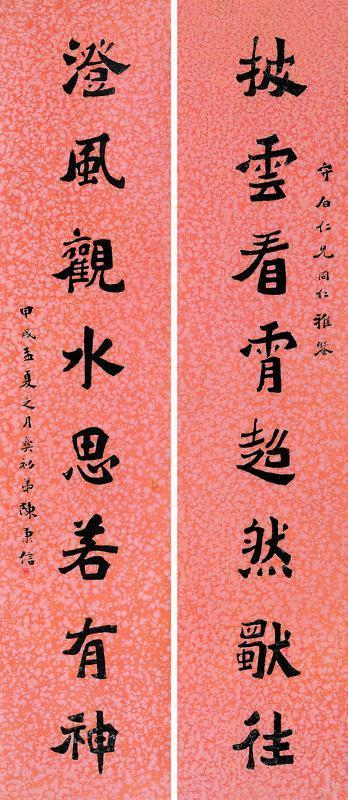 披雲看霄超然獨往
守伯仁兄同仁雅鑒
澄風觀水思若有神
甲戌孟夏之月 弟陳秉信